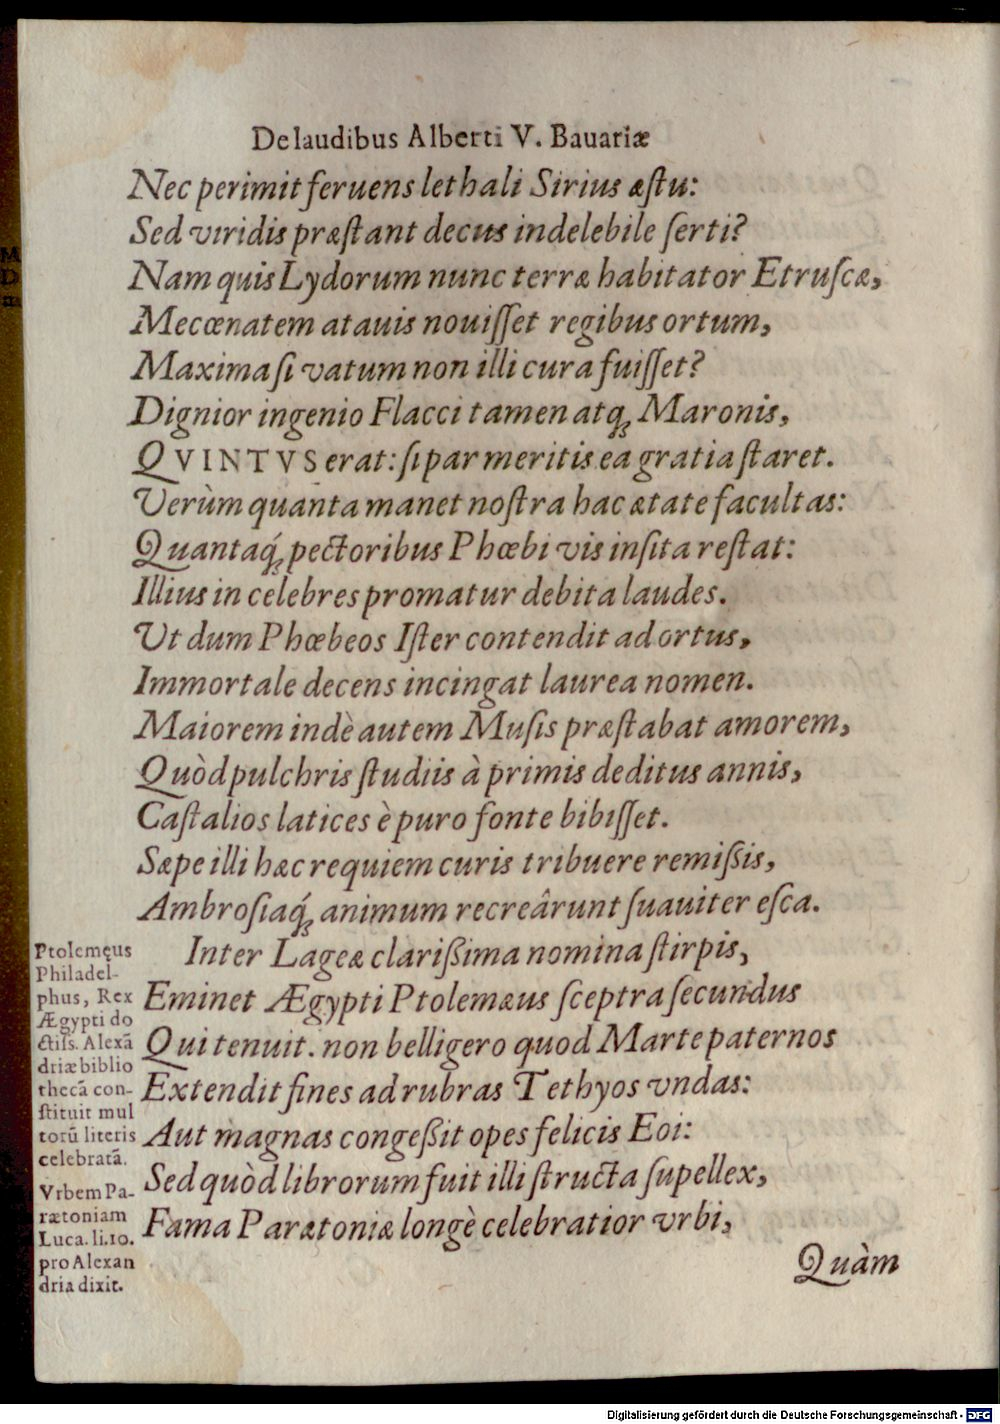 De laudibus Alberti V. Bauariæ
Nec perimit feruens lethali Sirius æſtu:
Sed viridis præſtant decus indelebile ſerti?
Nam quis Lydorum nunc terræ habitator Etruſcæ,
Mecœnatem atauis nouiſſet regibus ortum,
Maxima ſi vatum non illi cura fuiſſet?
Dignior ingenio Flacci tamen atq́ꝫ Maronis,
QVINTVS erat: ſi par meritis ea gratia ſtaret.
Verùm quanta manet noſtra hac ætate facultas:
Quantaq́ꝫ pectoribus Phœbi vis inſita reſtat:
Illius in celebres promatur debita laudes.
Ut dum Phœbeos Iſter contendit ad ortus,
Immortale decens incingat laurea nomen.
Maiorem indè autem Muſis præſtabat amorem,
Quòd pulchris ſtudiis à primis deditus annis,
Caſtalios latices è puro fonte bibiſſet.
Sæpe illi hæc requiem curis tribuere remiſsis,
Ambroſiaq́ꝫ animum recreârunt ſuauiter eſca.
Inter Lageæ clariſsima nomina ſtirpis,
Eminet Ægypti Ptolemæus ſceptra ſecundus
Qui tenuit. non belligero quod Marte paternos
Extendit fines ad rubras Tethyos vndas:
Aut magnas congeſsit opes felicis Eoi:
Sed quòd librorum fuit illi ſtructa ſupellex,
Fama Parætoniæ longè celebratior vrbi,
Quàm
Ptolemęus
Philadel-
phus, Rex
Ægypti do
ctiſs. Alexã
driæ biblio
thecã con-
ſtituit mul
torũ literis
celebratã.
Vrbem Pa-
rætoniam
Luca. li. 10.
pro Alexan
dria dixit.
M
D
Digitalisierung gefördert durch die Deutsche Forschungsgemeinschaft - DFG